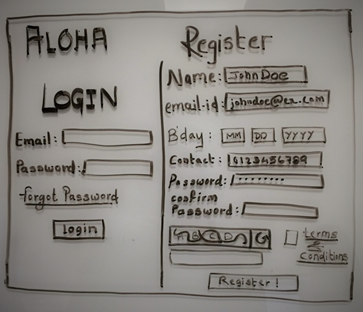 ALOHA
LOGIN
Email:
Password:
forgot Password
Login
Register
Name: JohnDoe
email-id: johndoe@ex.com
B'day: MM DD YYYY
Contact: 0123456789
Password: ........
confirm
Password:
terms
&
conditions
Register!